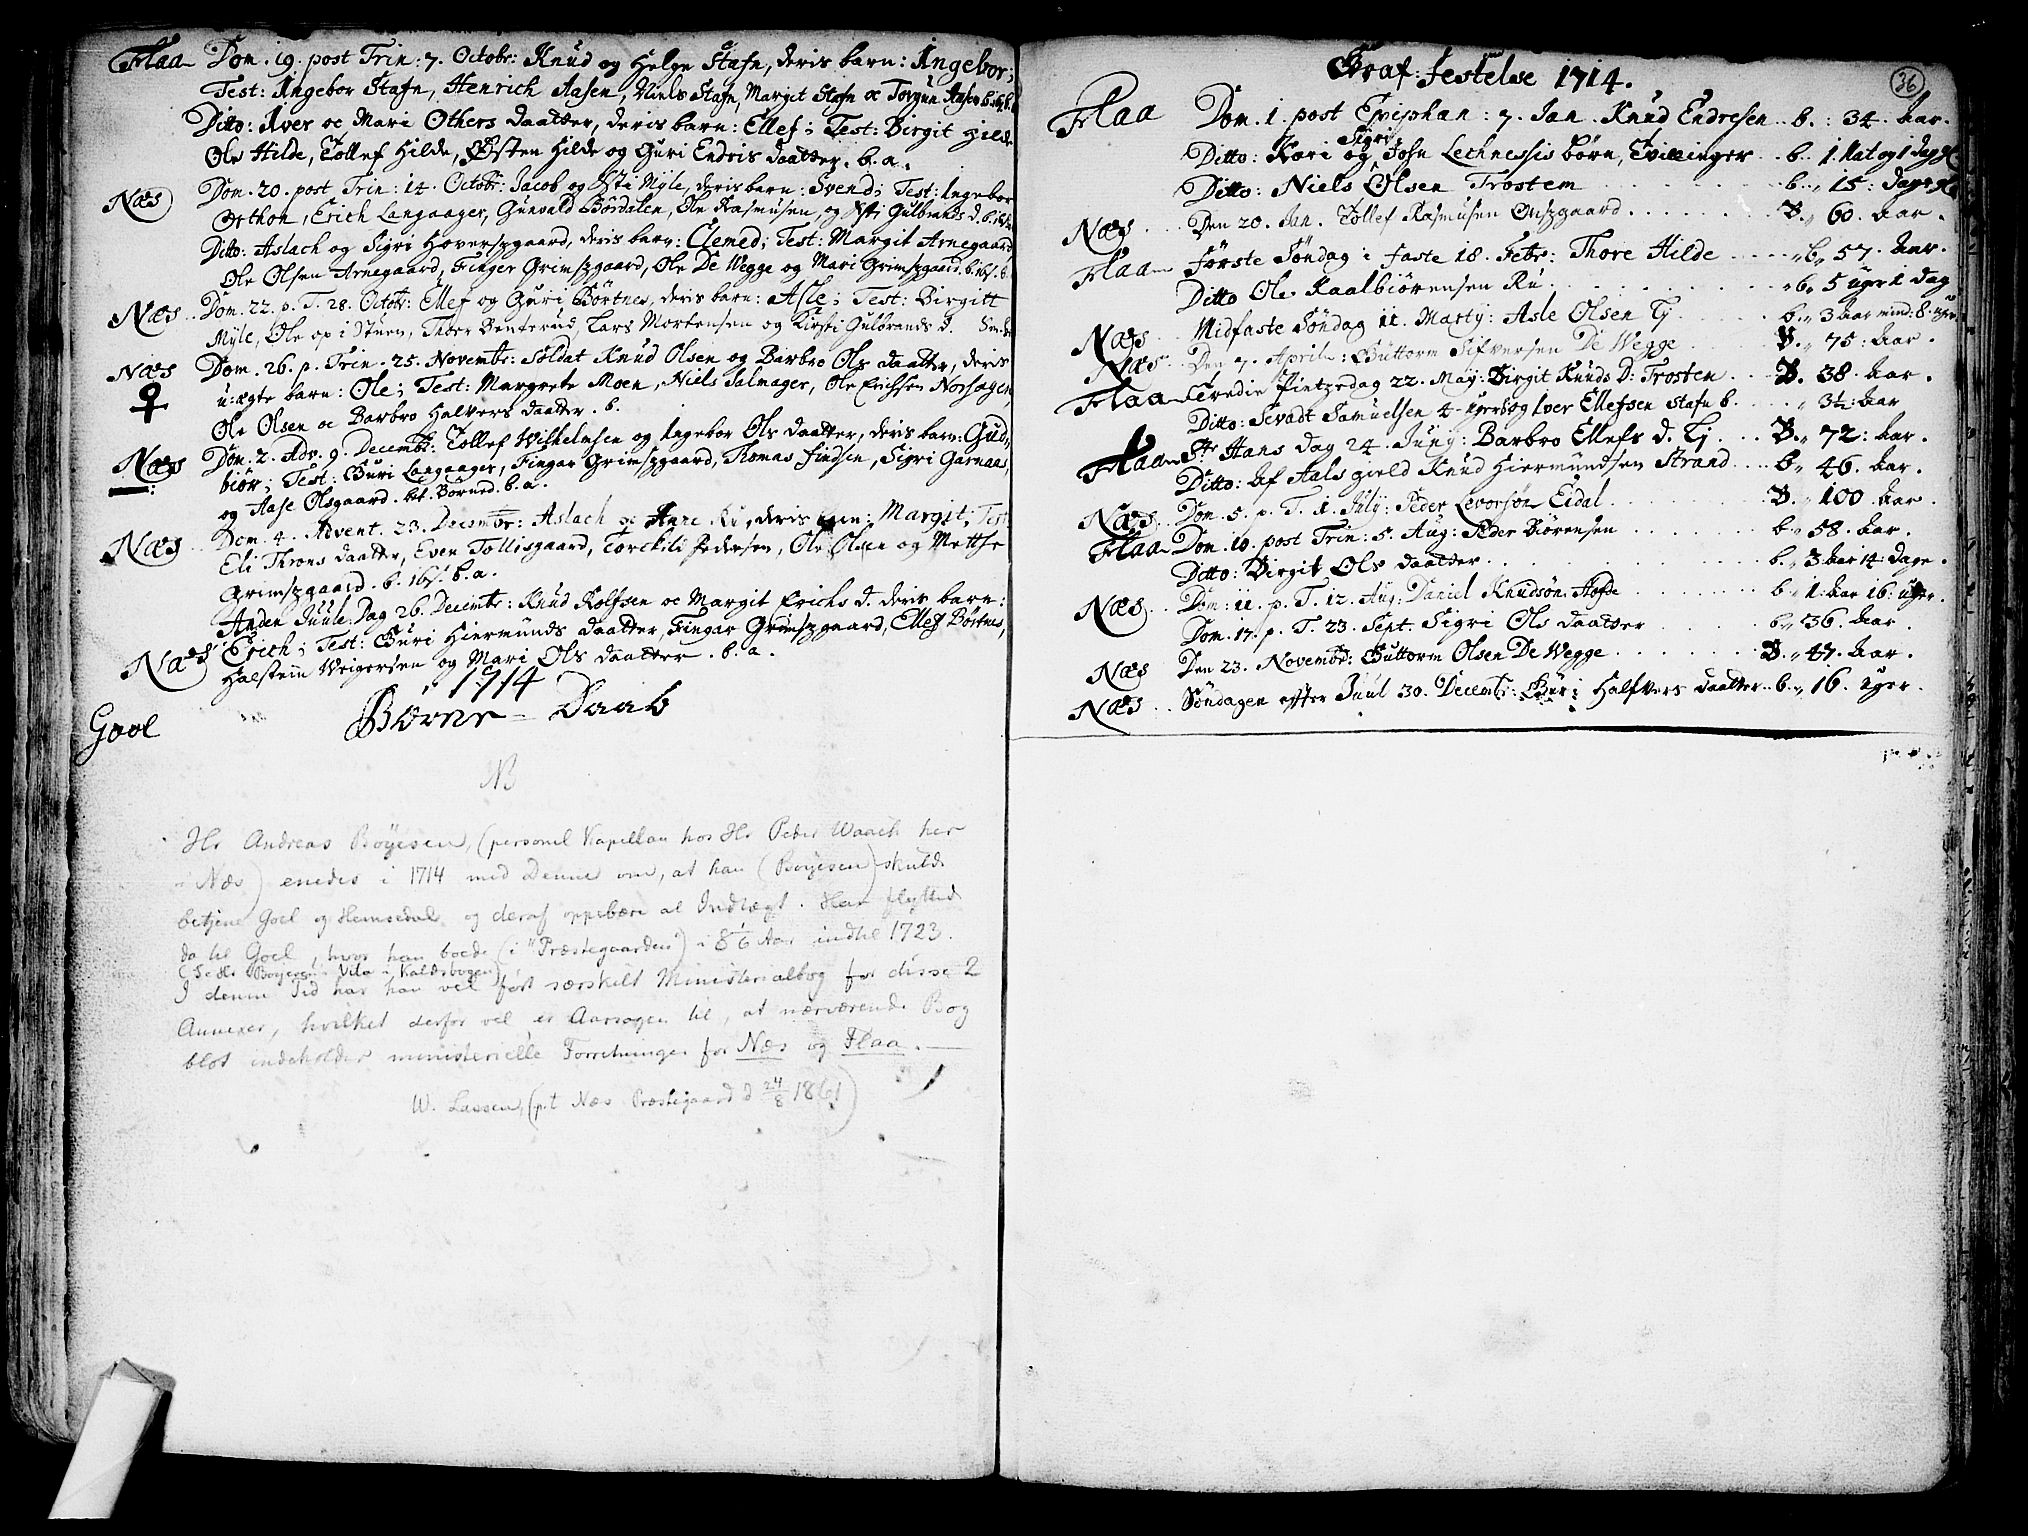 Flaa Dom. 19. post Trin: 7. Octobr: Knud og Helge Stafn, deris barn: Ingebor;
Test: Ingebor Stafn, Henrich Aasen, Niels Stafn, Margit Stafn oc Torgun Aasen
Ditto: Iver oc Mari Others daatter, deris barn: Ellef; Test: Birgit Hilde
Ole Hilde, Tollef Hilde, Østen Hilde og Guri Endris daatter. b. a.
Næs Dom. 20. post Trin: 14. Octobr: Jacob og Myle, deris barn: Svend; Test: Ingebor
Orthon, Erich Langaager, Gunvald Børdalen, Ole Rasmusen, og Gulbrands d.
Ditto: Aslach og Sigri Hoversgaard, deris barn: Clemed; Test: Margit Arnegaard
Ole Olsen Arnegaard, Finger Grimsgaard, Ole De Wegge og Mari Grimsgaard.
Næs Dom. 22. p. T. 28. Octobr: Ellef og Guri Børtnes, deris barn: Asle; Test: Birgitt
Myle, Ole op i Stuen, Thoer Benterud, Lars Mortensen og Kirsti Gulbrands d.
Næs Dom. 26. p. Trin. 25. Novembr: Soldat Knud Olsen og Barbro Ols daatter, deris
♀ u:ægte barn: Ole; Test: Margrete Moen, Niels Salmager, Ole Erichsen Norsagen
Ole Olsen oc Barbro Halvers daatter. b.
Næs Dom. 2. Adv. 9. Decembr: Tollef Wilhelmsen og Ingebor Ols daatter, deris barn: Gud,
biør; Test: Guri Langaager, Fingar Grimsgaard, Thomas Findsen, Sigri Garnaas,
og Aase Olsgaard. b. a.
Næs Dom. 4. Advent. 23. Decembr: Aslach oc Anne Ru, deris barn: Margit; Test:
Eli Throns daatter, Even Tollisgaard, Torckild Pedersen, Ole Olsen og Mette
Grimsgaard. b. b. a.
Anden Juule: Dag 26. Decembr: Knud Rolfsen oc Margit Erichs d. deris barn:
Næs Erich; Test: Guri Hiermunds daatter, Fingar Grimsgaard, Ellef Børtnes,
Halstein Weigersen og Mari Ols daatter. b. a.
1714
Gool Børne-Daab
NB
Hr Andreas Boyesen, (personel Kapellan hos Hr Peder Waach her
i Næs) enedes i 1714 med Denne om, at han (Boyesen) skulde
betjene Goel og Hemsedal og deraf oppebære al Indtægt. Han flyttede
da til Goel, hvor han boede (i "Præstegaarden") i Aar indtil 1723.
(Se Hr Boyesens Vita i Kaldsbogen)
I denne Tid har han vel ført særskilt Ministerialbog for disse 2
Annexer, hvilket derfor vel er Aarsagen til, at nærværende Bog
blot indeholder ministerielle Forretninger for Næs og Flaa. —
W. Lassen, (p.t Næs Præstegaard d 24/8 1861)
36
Graf: festelse 1714.
Flaa Dom. 1. post Epiphan: 7. Jan. Knud Endresen.. b.: 34. Aar.
Sigri
Ditto: Kari og John Lechnessis børn, Tvillinger.. b. 1. Nat og 1 dag
Ditto: Niels Olsen Trostem b. 15: dage
Næs Den 20. Jan. Tollef Rasmusen Onsgaard B. 60. Aar.
Flaa Første Søndag i faste 18. Febr: Thore Hilde b. 57. Aar.
Ditto Ole Kaalbiørensen Ru b. 5 uger 1 dag
Næs Midfaste Søndag 11. Martij: Asle Olsen b. 3 Aar mind: 8. uger
Næs Den 7. April: Guttorm Sifversen De Wegge B. 75: Aar.
Flaa Tredie Pintzedag 22. Maij: Birgit Knuds D: Trosten B. 38. Aar.
Ditto: Sevadt Samuelsen 4. uger b. og Iver Ellefsen Stafn b. 3½: Aar
Flaa St. Hans dag 24. Junij: Barbro Ellefs d. B. 72: Aar.
Ditto: Af Aals gield Knud Hiermundsen Strand b. 46. Aar.
Næs Dom. 5. p. T. 1. July: Peder Levorsøn Eidal B. 100 Aar.
Flaa Dom. 10. post Trin: 5. Aug: Peder Biørensen b. 58. Aar.
Ditto: Birgit Ols daatter b. 3 Aar 14. dage.
Næs Dom: 11. p. T. 12. Aug: Daniel Knudsøn Hofde b. 1. Aar 16. uger.
Dom. 17. p. T. 23. Sept. Sigri Ols daatter b. 36. Aar.
Næs Den 23. Novembr: Guttorm Olsen De Wegge B. 47. Aar.
Næs Søndagen effter Juul 30. Decembr: Guri Halfvers daatter b. 16. uger.